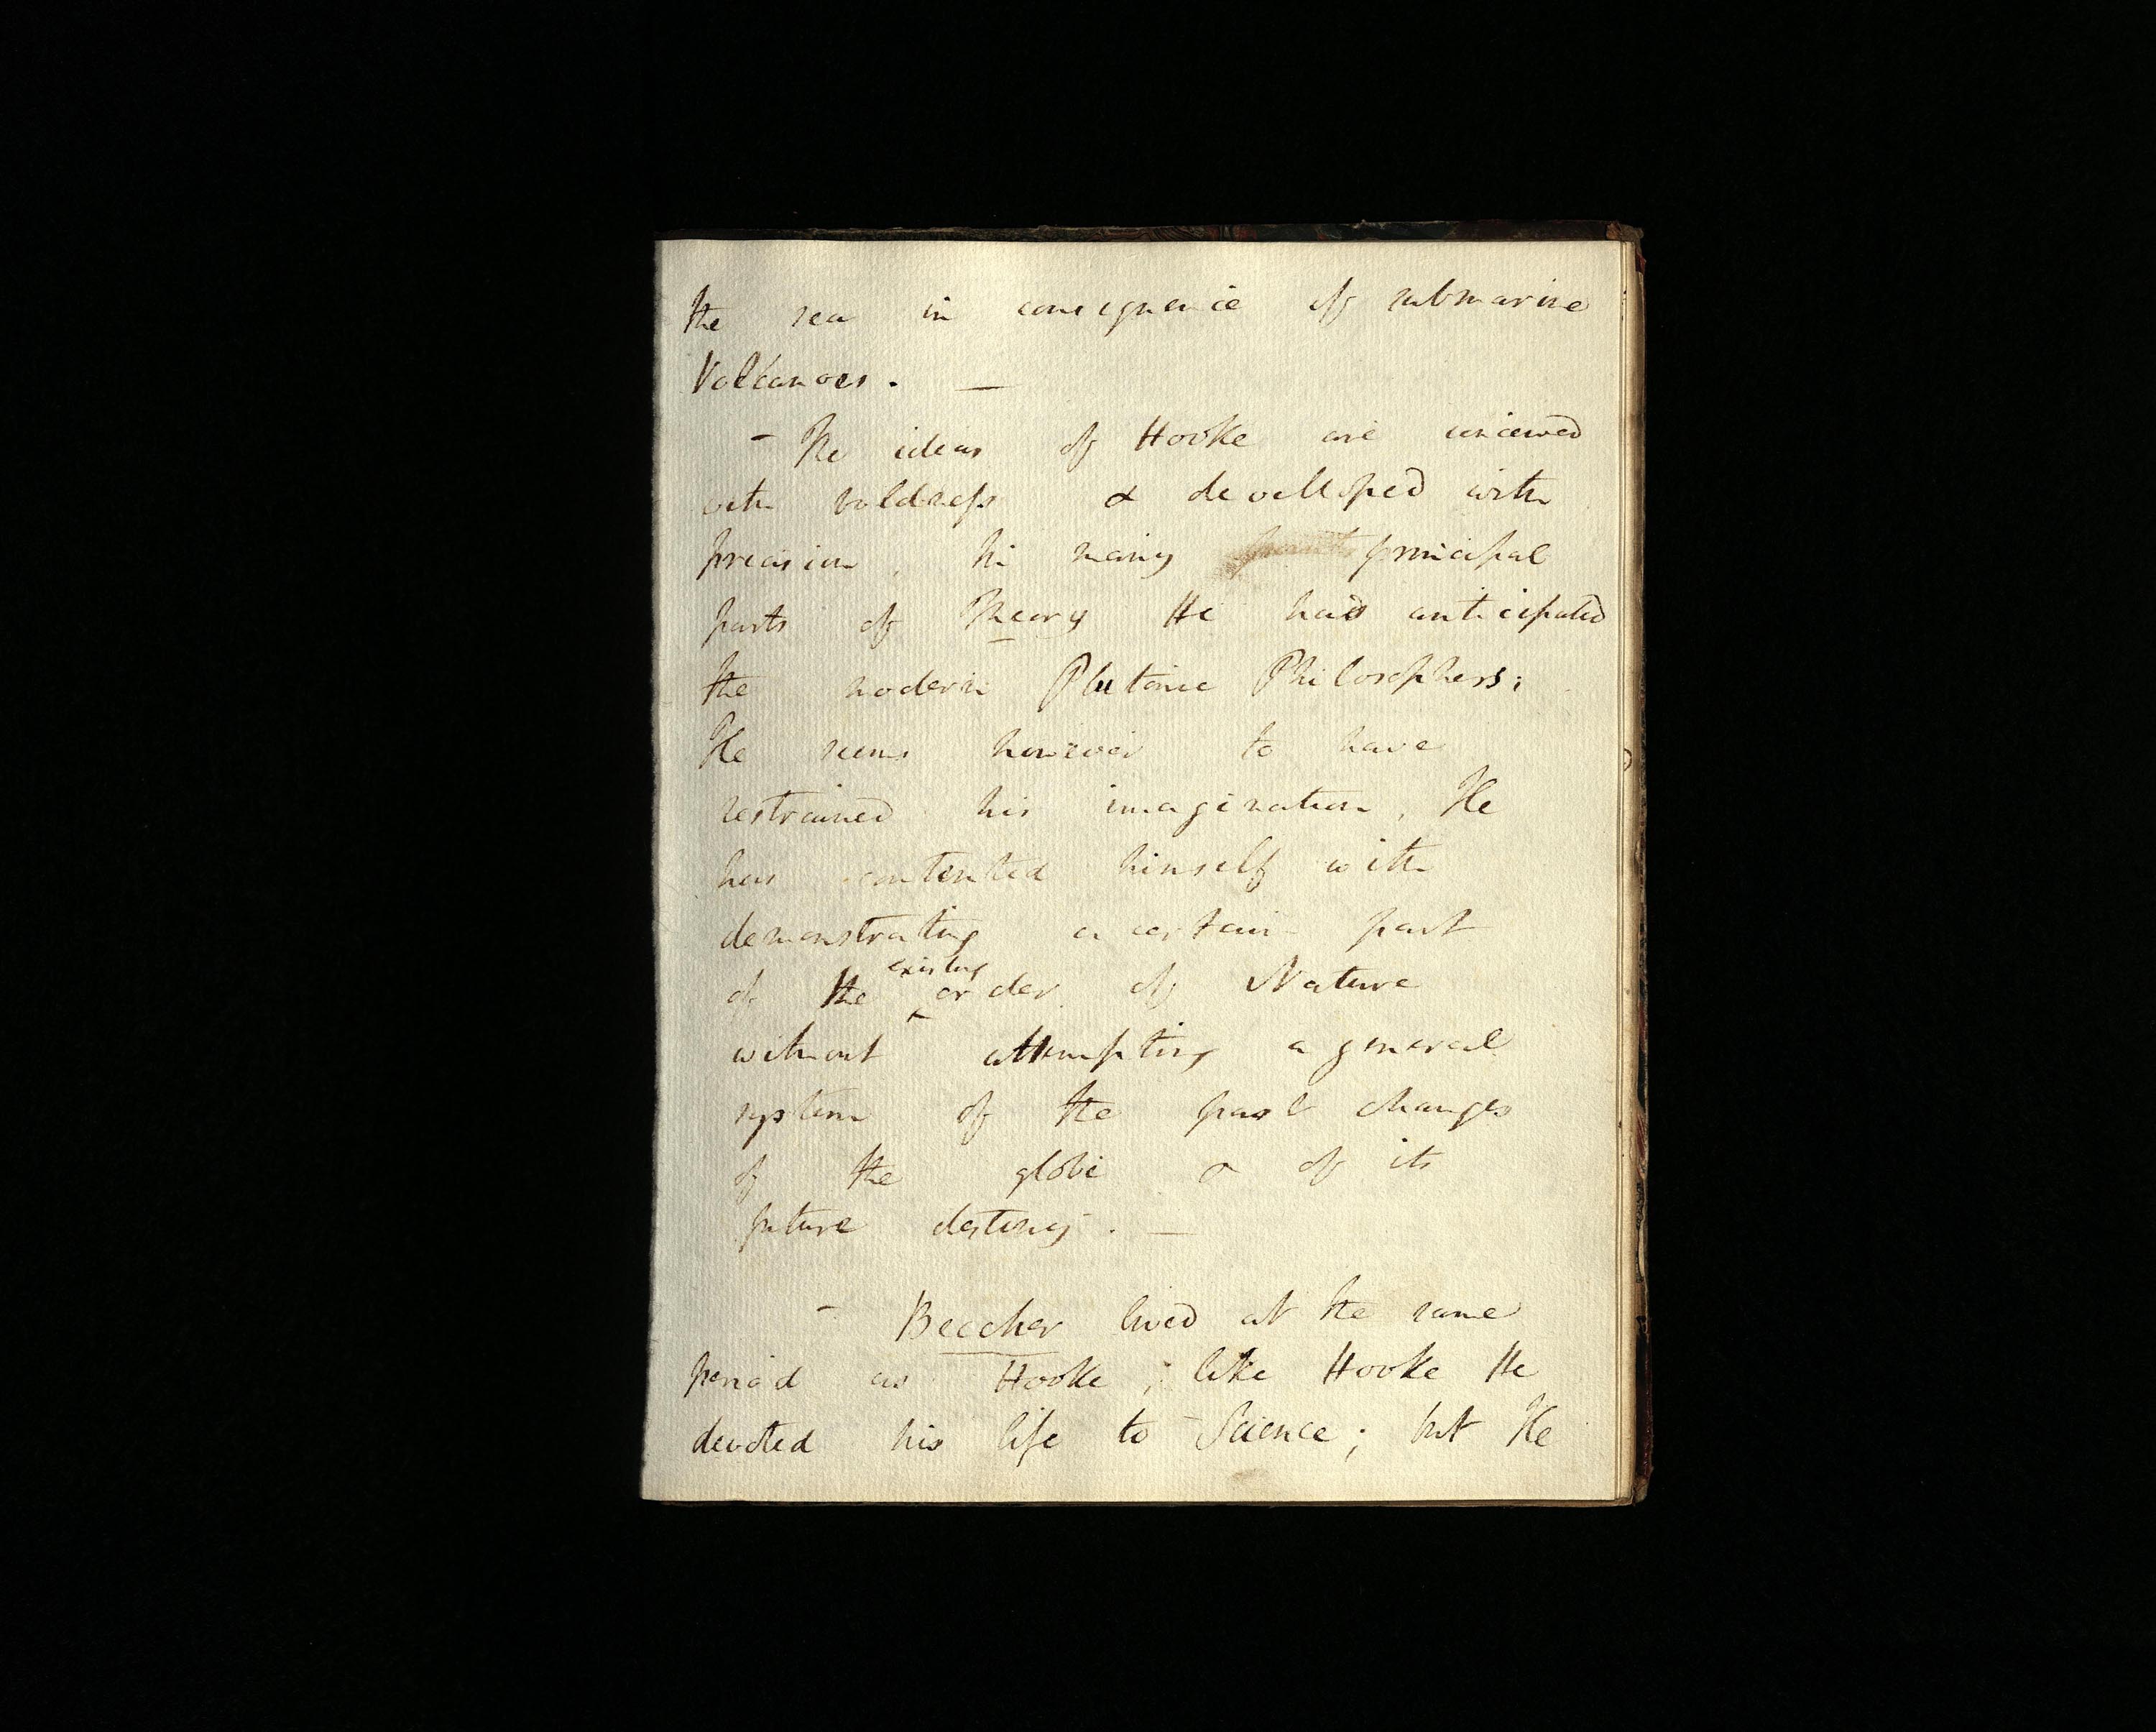 the sea in consequence of submarine
Volcanoes. —
- The ideas of Hooke are conceived
with boldness & developed with
precision, In many principal
parts of Theory He had anticipated
the modern Plutonic Philosophers;
He seems however to have
restrained his imagination, He
has contented himself with
demonstrating a certain part
of the existing order of Nature
without attempting a general
system of the past changes
of the globe or of its
future destiny. —
- Beecher lived at the same
period as Hooke; like Hooke He
devoted his life to Science; but He